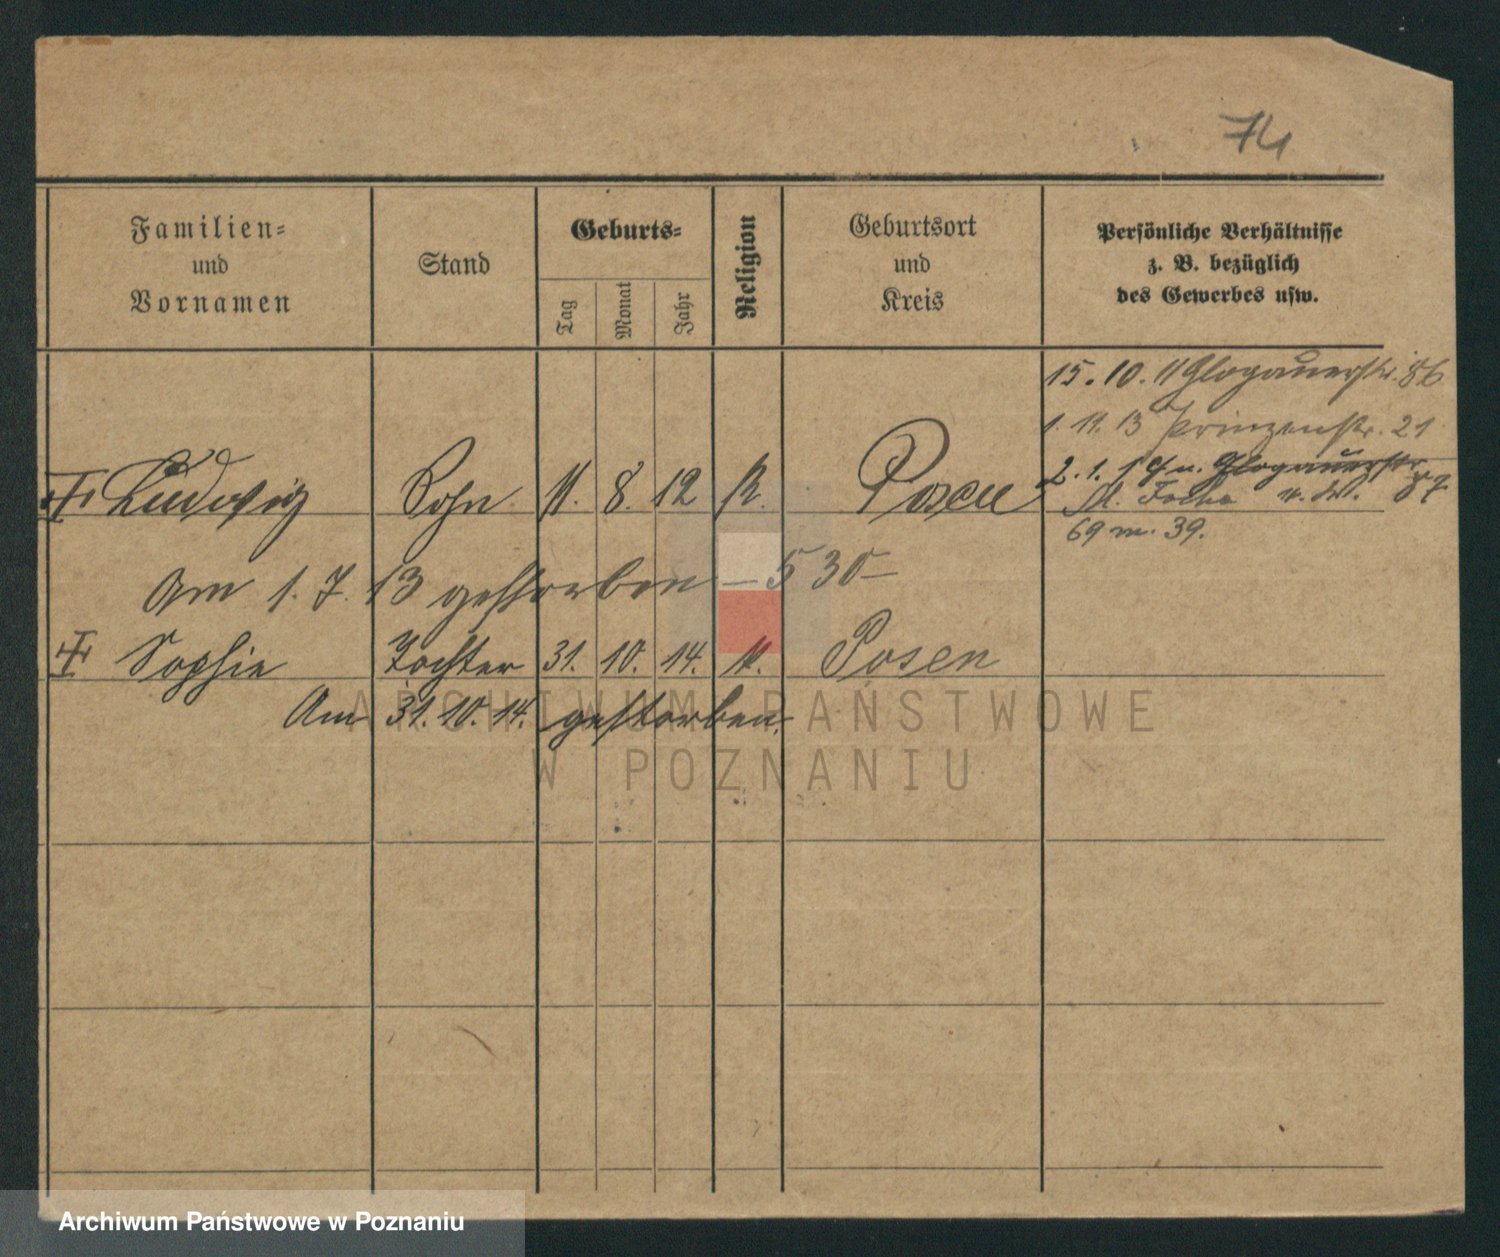 74
Familien-
und
Vornamen
Stand
Geburts-
Tag
Monat
Jahr
Religion
Geburtsort
und
Kreis
Persönliche Verhältnisse
z. B. bezüglich
des Gewerbes usw.
15. 10. 11 Glogauerstr. 86
1. 11. 13 Prinzenstr. 21
2. 1. Glogauerstr. 87
Ludwig Sohn 11. 8. 12 k. Posen
69 m. 39.
Am 1. 7. 13 gestorben – 530 –
Sophie Tochter 31. 10. 14. k. Posen
Am 31. 10. 14. gestorben.
ARCHIWUM PAŃSTWOWE
W POZNANIU
Archiwum Państwowe w Poznaniu